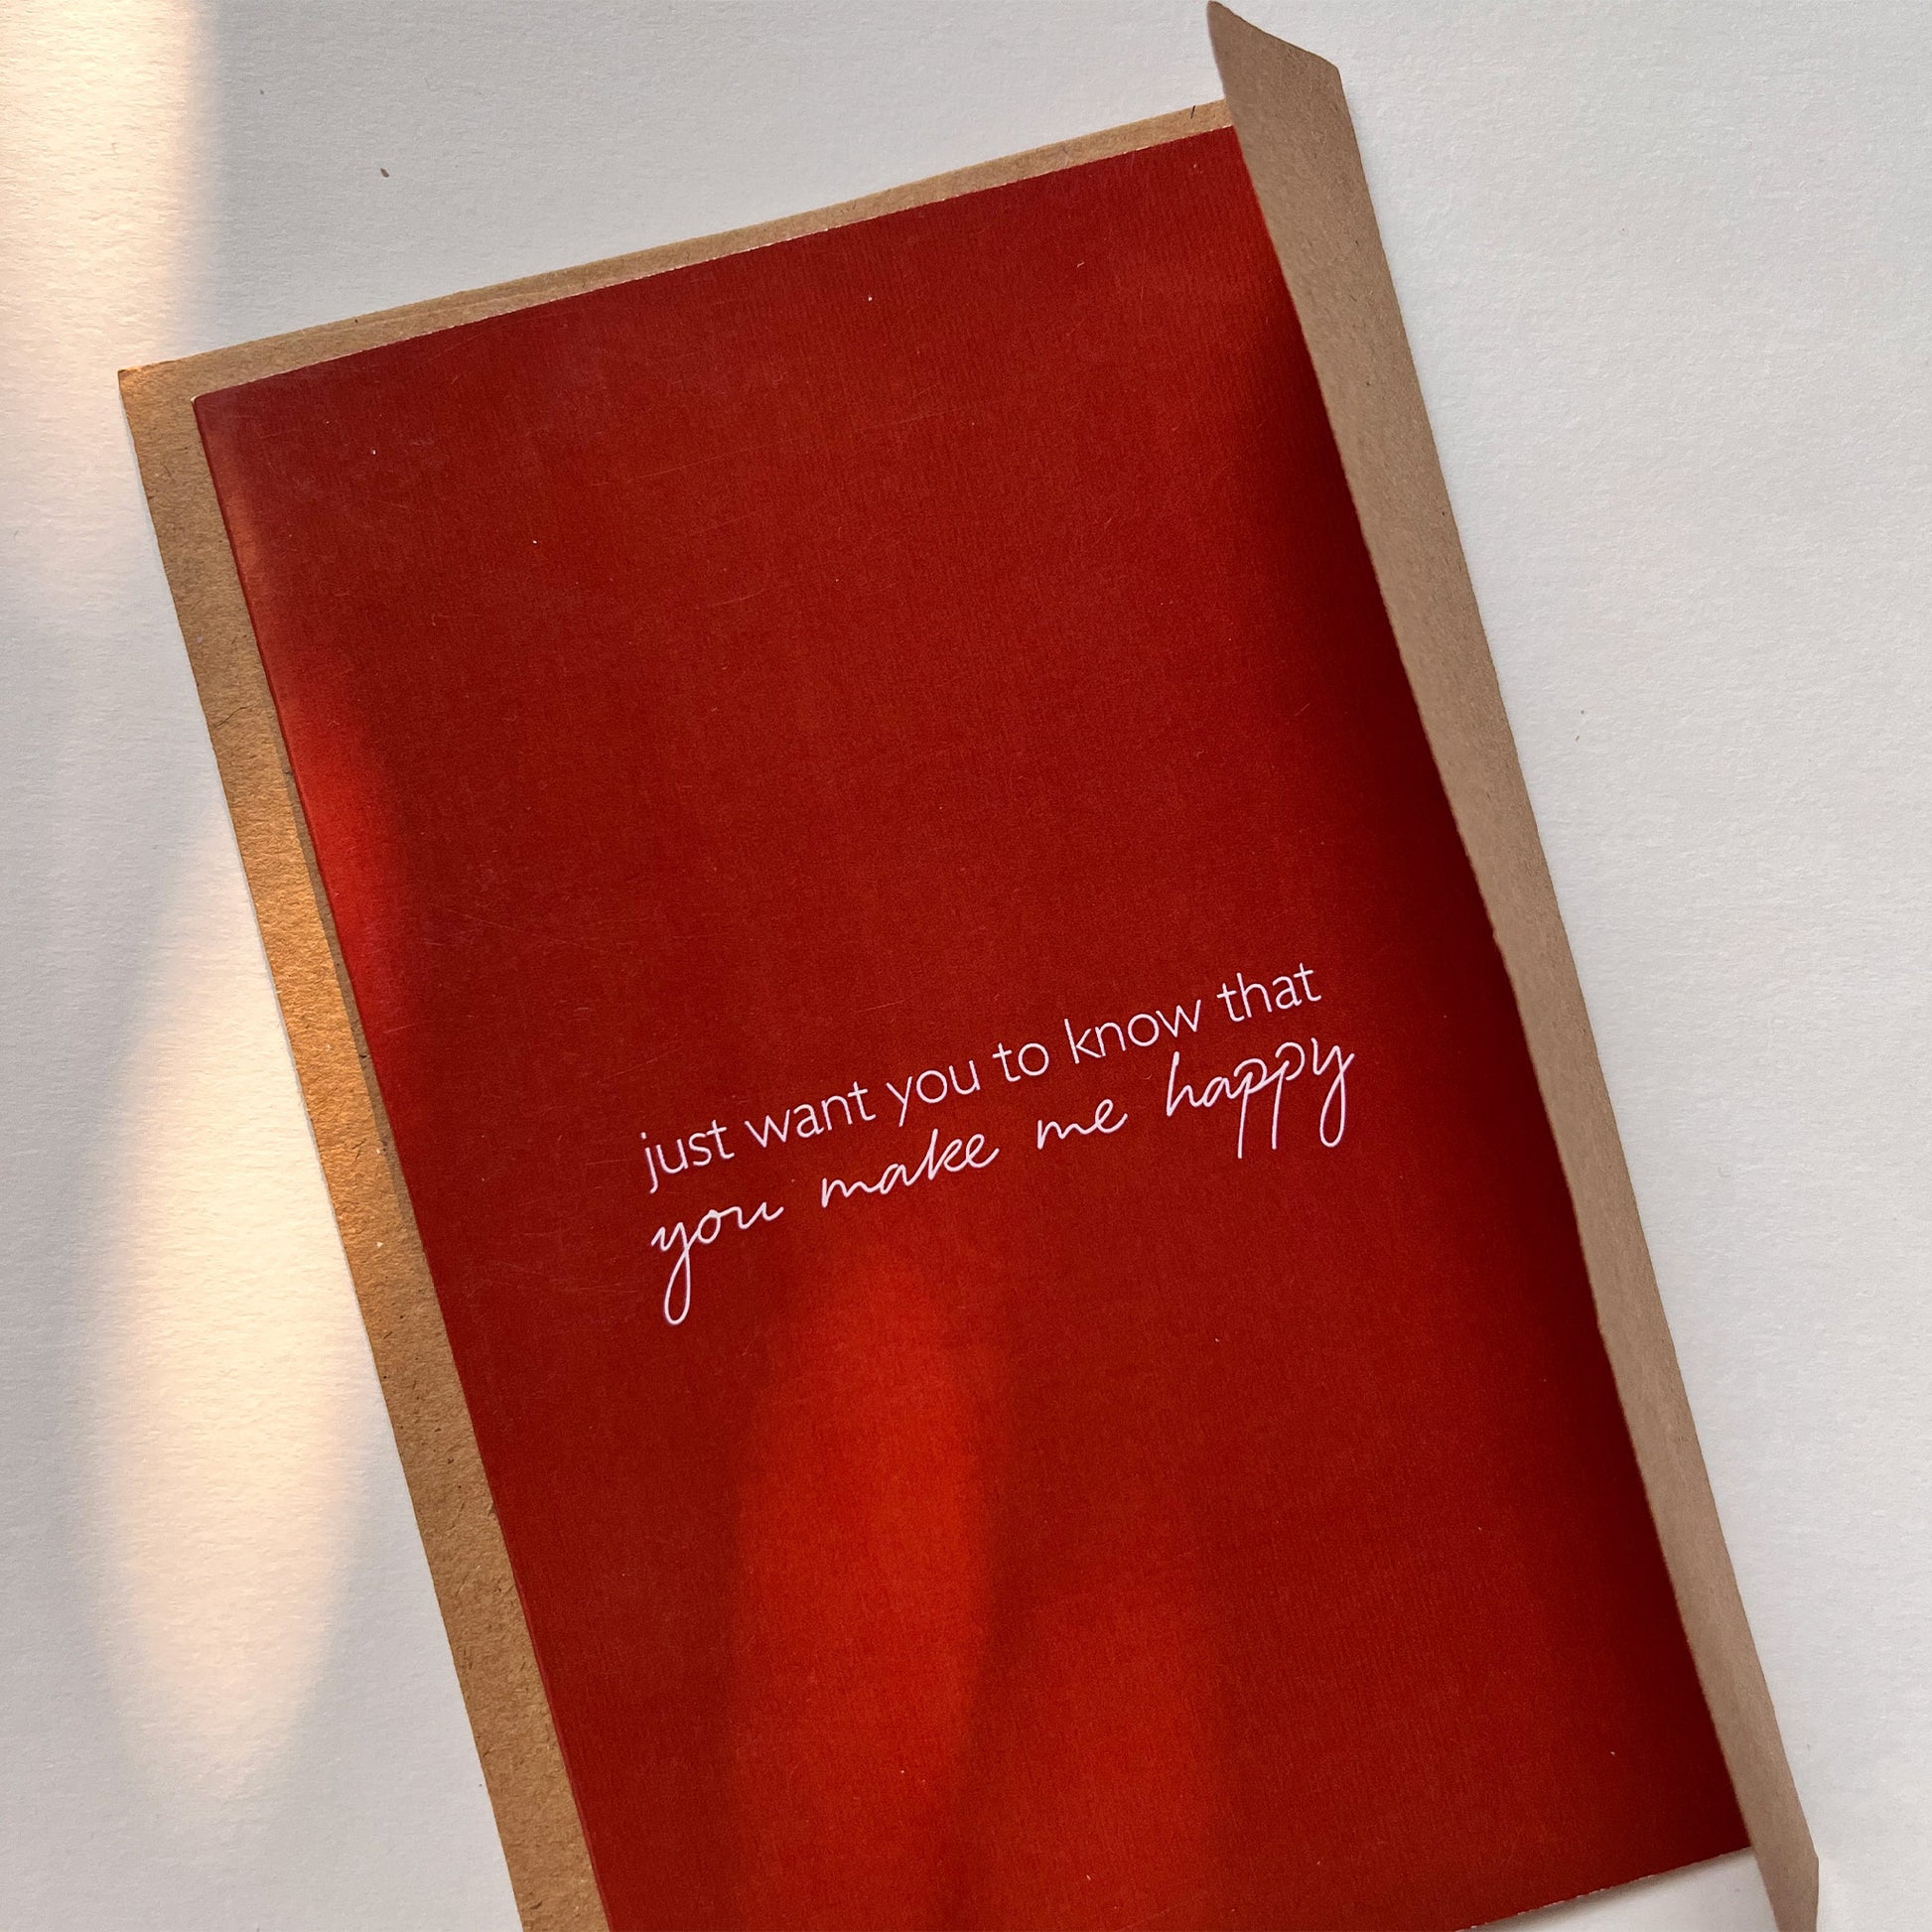 just want you to know that
you make me happy